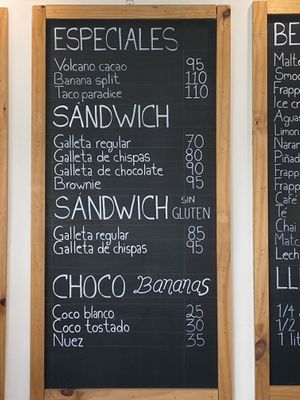 ESPECIALES
Volcano cacao 95
Banana split 110
Taco paradice 110
SÁNDWICH
Galleta regular 70
Galleta de chispas 80
Galleta de chocolate 90
Brownie 95
SÁNDWICH SIN GLUTEN
Galleta regular 85
Galleta de chispas 95
CHOCO BANANAS
Coco blanco 25
Coco tostado 30
Nuez 35
BE
Malte
Smoo
Frapp
Ice cr
Agua
Limon
Naran
Piñad
Frapp
Frapp
Café
Té
Chai
Matc
Lech
LL
1/4
1/2
1 lit